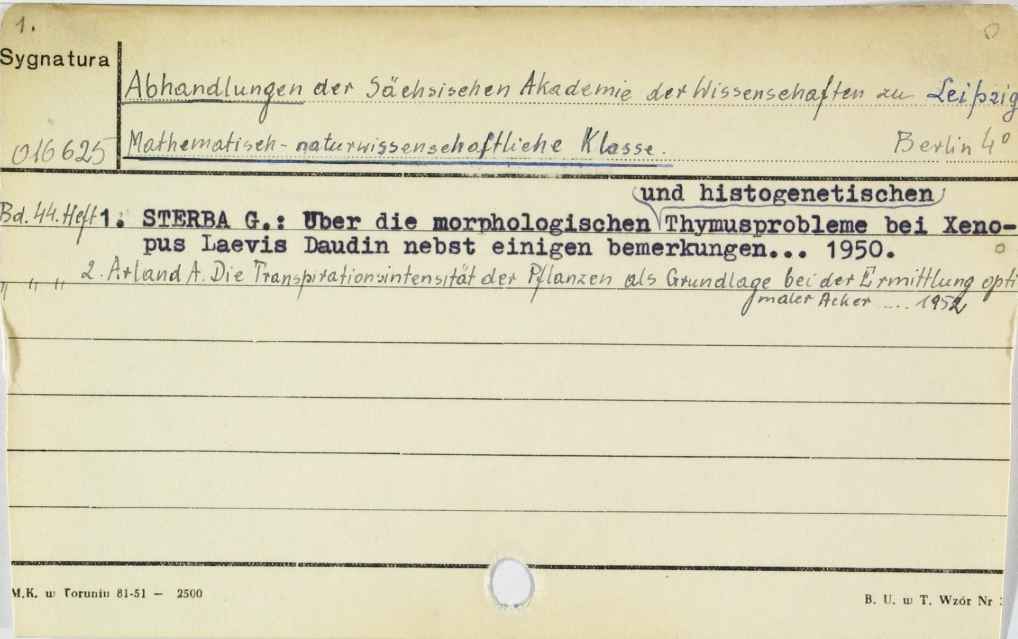 1.
Sygnatura
Abhandlungen der Sächsischen Akademie der Wissenschaften zu Leipzig
016625 Mathematisch-naturwissenschaftliche Klasse. Berlin 4°
und histogenetischen
Bd. 44. Heft 1. STERBA G.: Uber die morphologischen Thymusprobleme bei Xeno-
pus Laevis Daudin nebst einigen bemerkungen... 1950.
" " " 2. Arland A. Die Transpirationsintensität der Pflanzen als Grundlage bei der Ermittlung opti
maler Acker .... 1952
M.K. w Toruniu 81-51 — 2500
B. U. w T. Wzór Nr